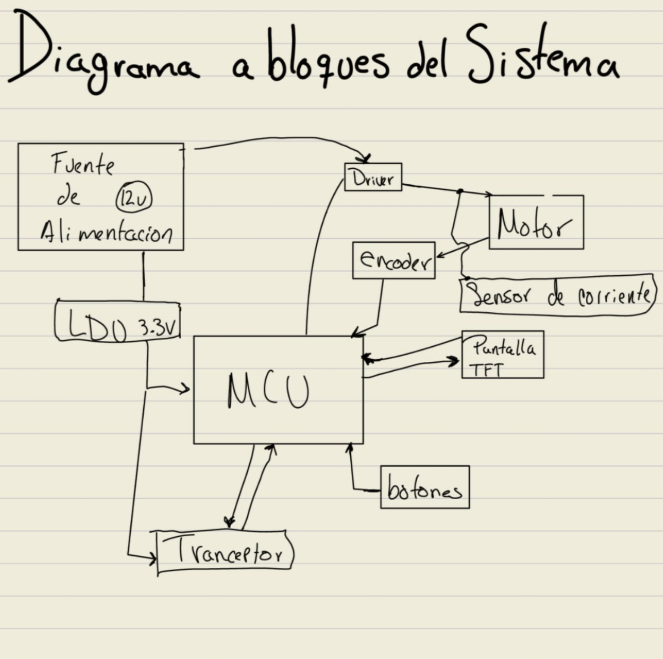 Diagrama a bloques del Sistema
Fuente
de 12v
Alimentacion
Driver
Motor
encoder
Sensor de corriente
LDO 3.3V
MCU
Pantalla
TFT
botones
Tranceptor